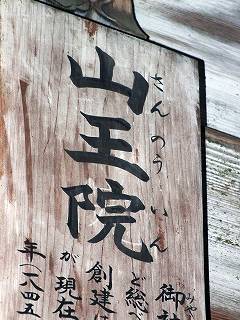 山王院
さんのういん
御社
みや
ど総
創建
が現在
年(一八四五